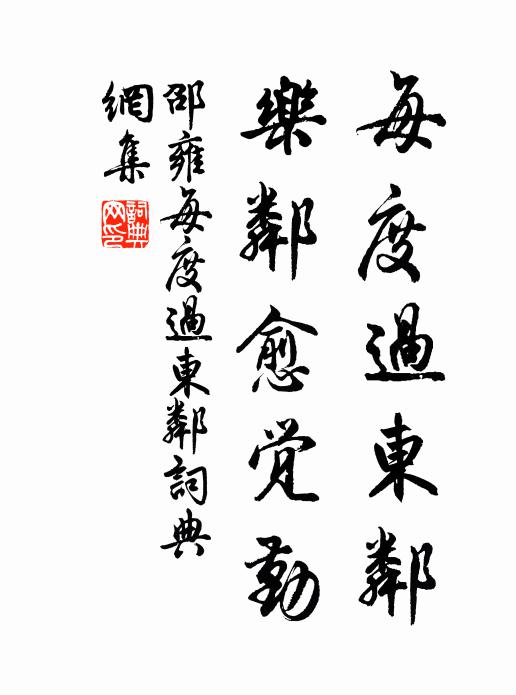 每度過東鄰
樂鄰愈觉勤
邵雍每度過東鄰詞典
網集
詞典
网印